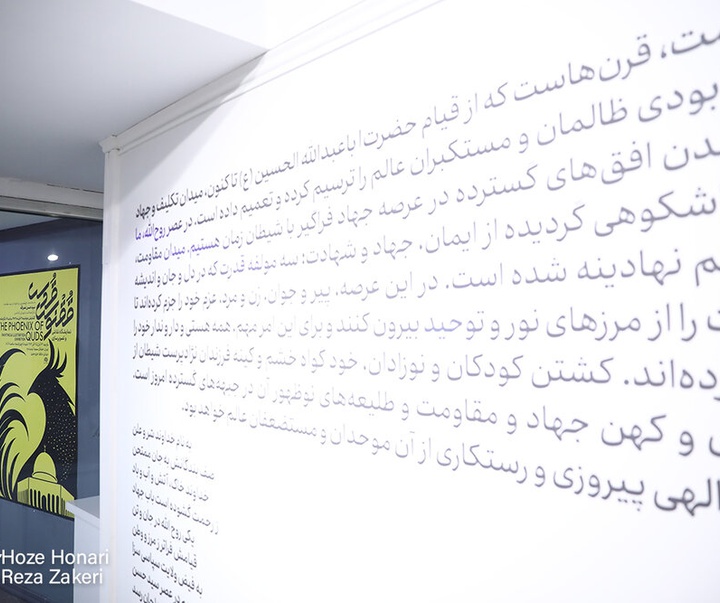 ست، قرن‌هاست که از قیام حضرت اباعبدالله الحسین (ع) تا کنون، میدان تکلیف و جهاد
بودی ظالمان و مستکبران عالم را ترسیم کرده و تعمیم داده است. در عصر روح‌الله، ما
دن افق‌های گسترده در عرصه جهاد فراگیر با شیطان زمان هستیم. میدان مقاومت،
شکوهی گردیده از ایمان، جهاد و شهادت: سه مولفه قدرت که در دل و جان و اندیشه
م نهادینه شده است. در این عرصه، پیر و جوان، زن و مرد، عزم خود را جزم کرده‌اند تا
را از مرزهای نور و توحید بیرون کنند و برای این امر مهم، همه هستی و دار و ندار خود را
ده‌اند. کشتن کودکان و نوزادان، خود گواه خشم و کینه فرزندان نژادپرست شیطان از
و کهن جهاد و مقاومت و طلیعه‌های نوظهور آن در جبهه‌های گسترده امروز است،
الهی پیروزی و رستگاری از آن موحدان و مستضعفان عالم خواهد بود.
به نام خداوند
باب جهاد
یکی روح الله در جان و تن
قیامش فراتر ز مرز و وطن
به فیض ولایت سیاسی
در عصر سید حسن
THE PHOENIX OF
QUDS
Hoze Honari
Reza Zakeri